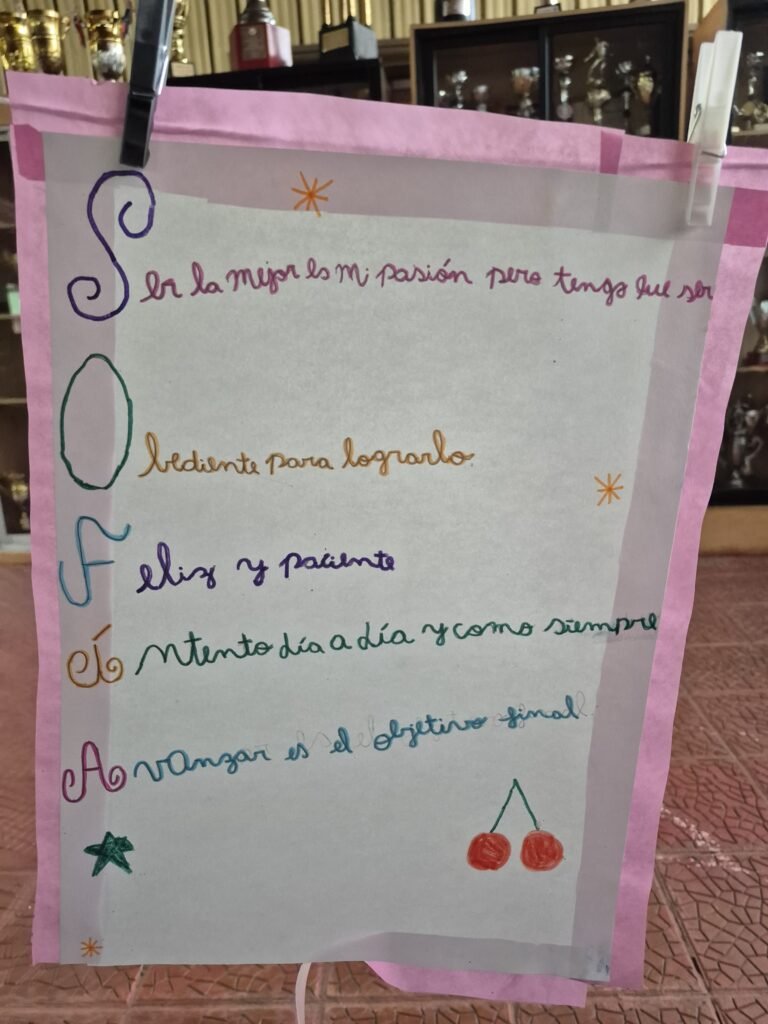 Ser la mejor es mi pasión pero tengo que ser
Obediente para lograrlo
Feliz y paciente
Íntento día a día y como siempre
Avanzar es el objetivo final